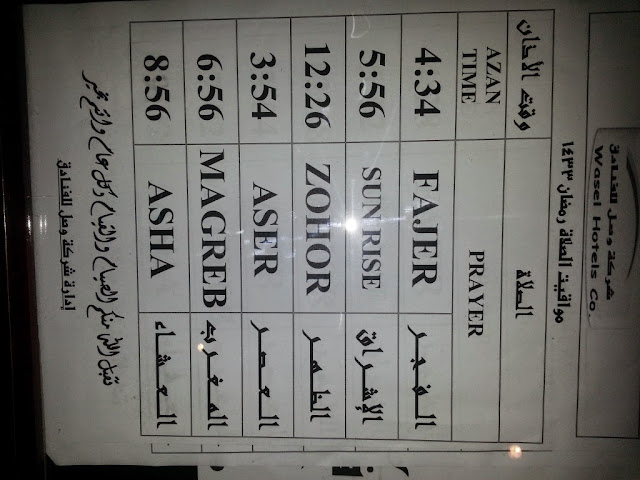 شركة وصل للفنادق
Wasel Hotels Co.
مواقيت الصلاة رمضان ١٤٣٣
وقت الأذان الصلاة
AZAN TIME PRAYER
4:34 FAJER الفجر
5:56 SUNRISE الإشراق
12:26 ZOHOR الظهر
3:54 ASER العصر
6:56 MAGREB المغرب
8:56 ASHA العشاء
تقبل الله منكم الصيام والقيام وكل عام وانتم بخير
إدارة شركة وصل للفنادق